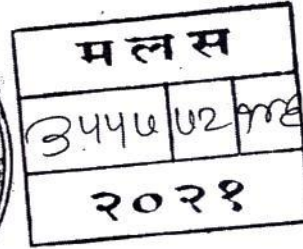 म ल स
३५५७ ७२
२०२१